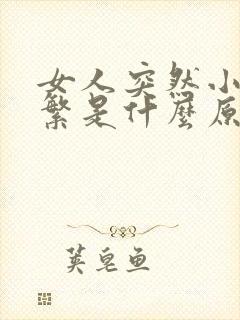 女人突然小
繁是什麼原
荚皂鱼